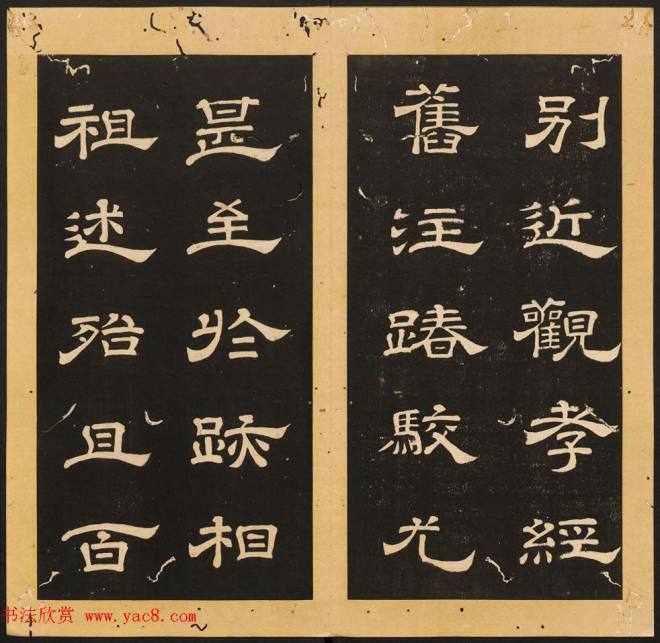 別近觀孝經
舊注踳駮尤
甚至於跡相
祖述殆且百
书法欣赏 www.yac8.com